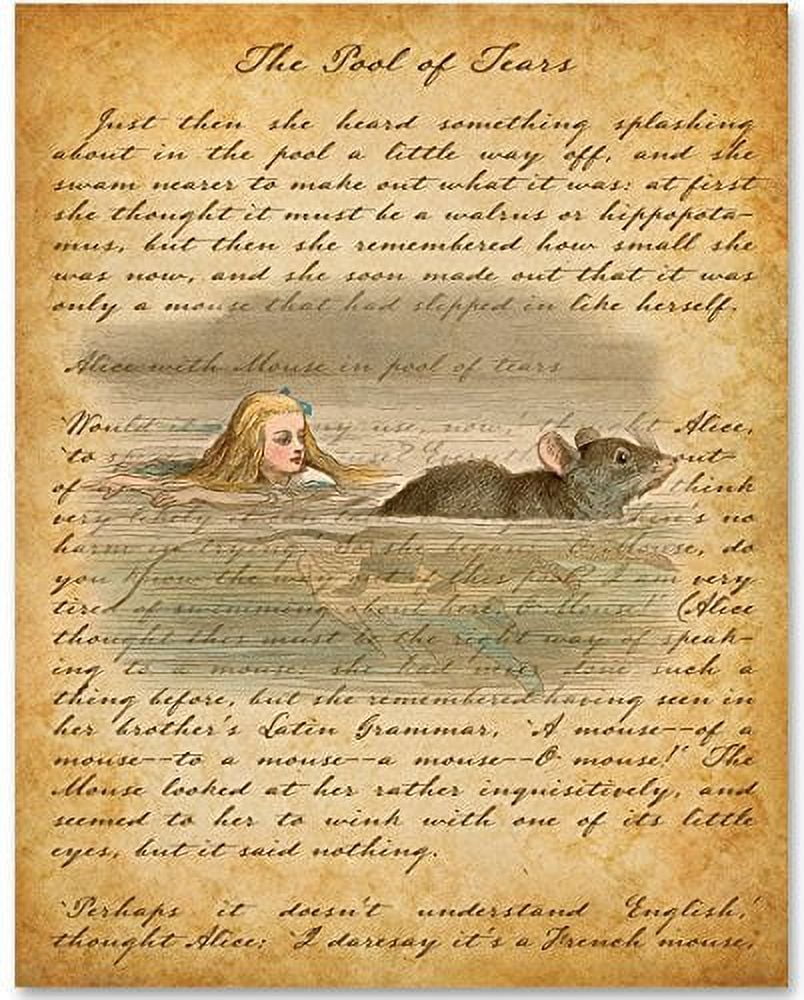 The Pool of Tears
Just then she heard something splashing
about in the pool a little way off, and she
swam nearer to make out what it was: at first
she thought it must be a walrus or hippopota-
mus, but then she remembered how small she
was now, and she soon made out that it was
only a mouse that had slipped in like herself.
Alice with Mouse in pool of tears
'Would it any use, now,' thought Alice,
'to mouse? out
of think
very likely it can no
harm in trying.' So she began: 'O Mouse, do
you know the way out of this pool? I am very
tired of swimming about here, O Mouse!' (Alice
thought this must be the right way of speak-
ing to a mouse: she had never done such a
thing before, but she remembered having seen in
her brother's Latin Grammar, 'A mouse--of a
mouse--to a mouse--a mouse--O mouse!' The
Mouse looked at her rather inquisitively, and
seemed to her to wink with one of its little
eyes, but it said nothing.
'Perhaps it doesn't understand English,'
thought Alice; 'I daresay it's a French mouse,